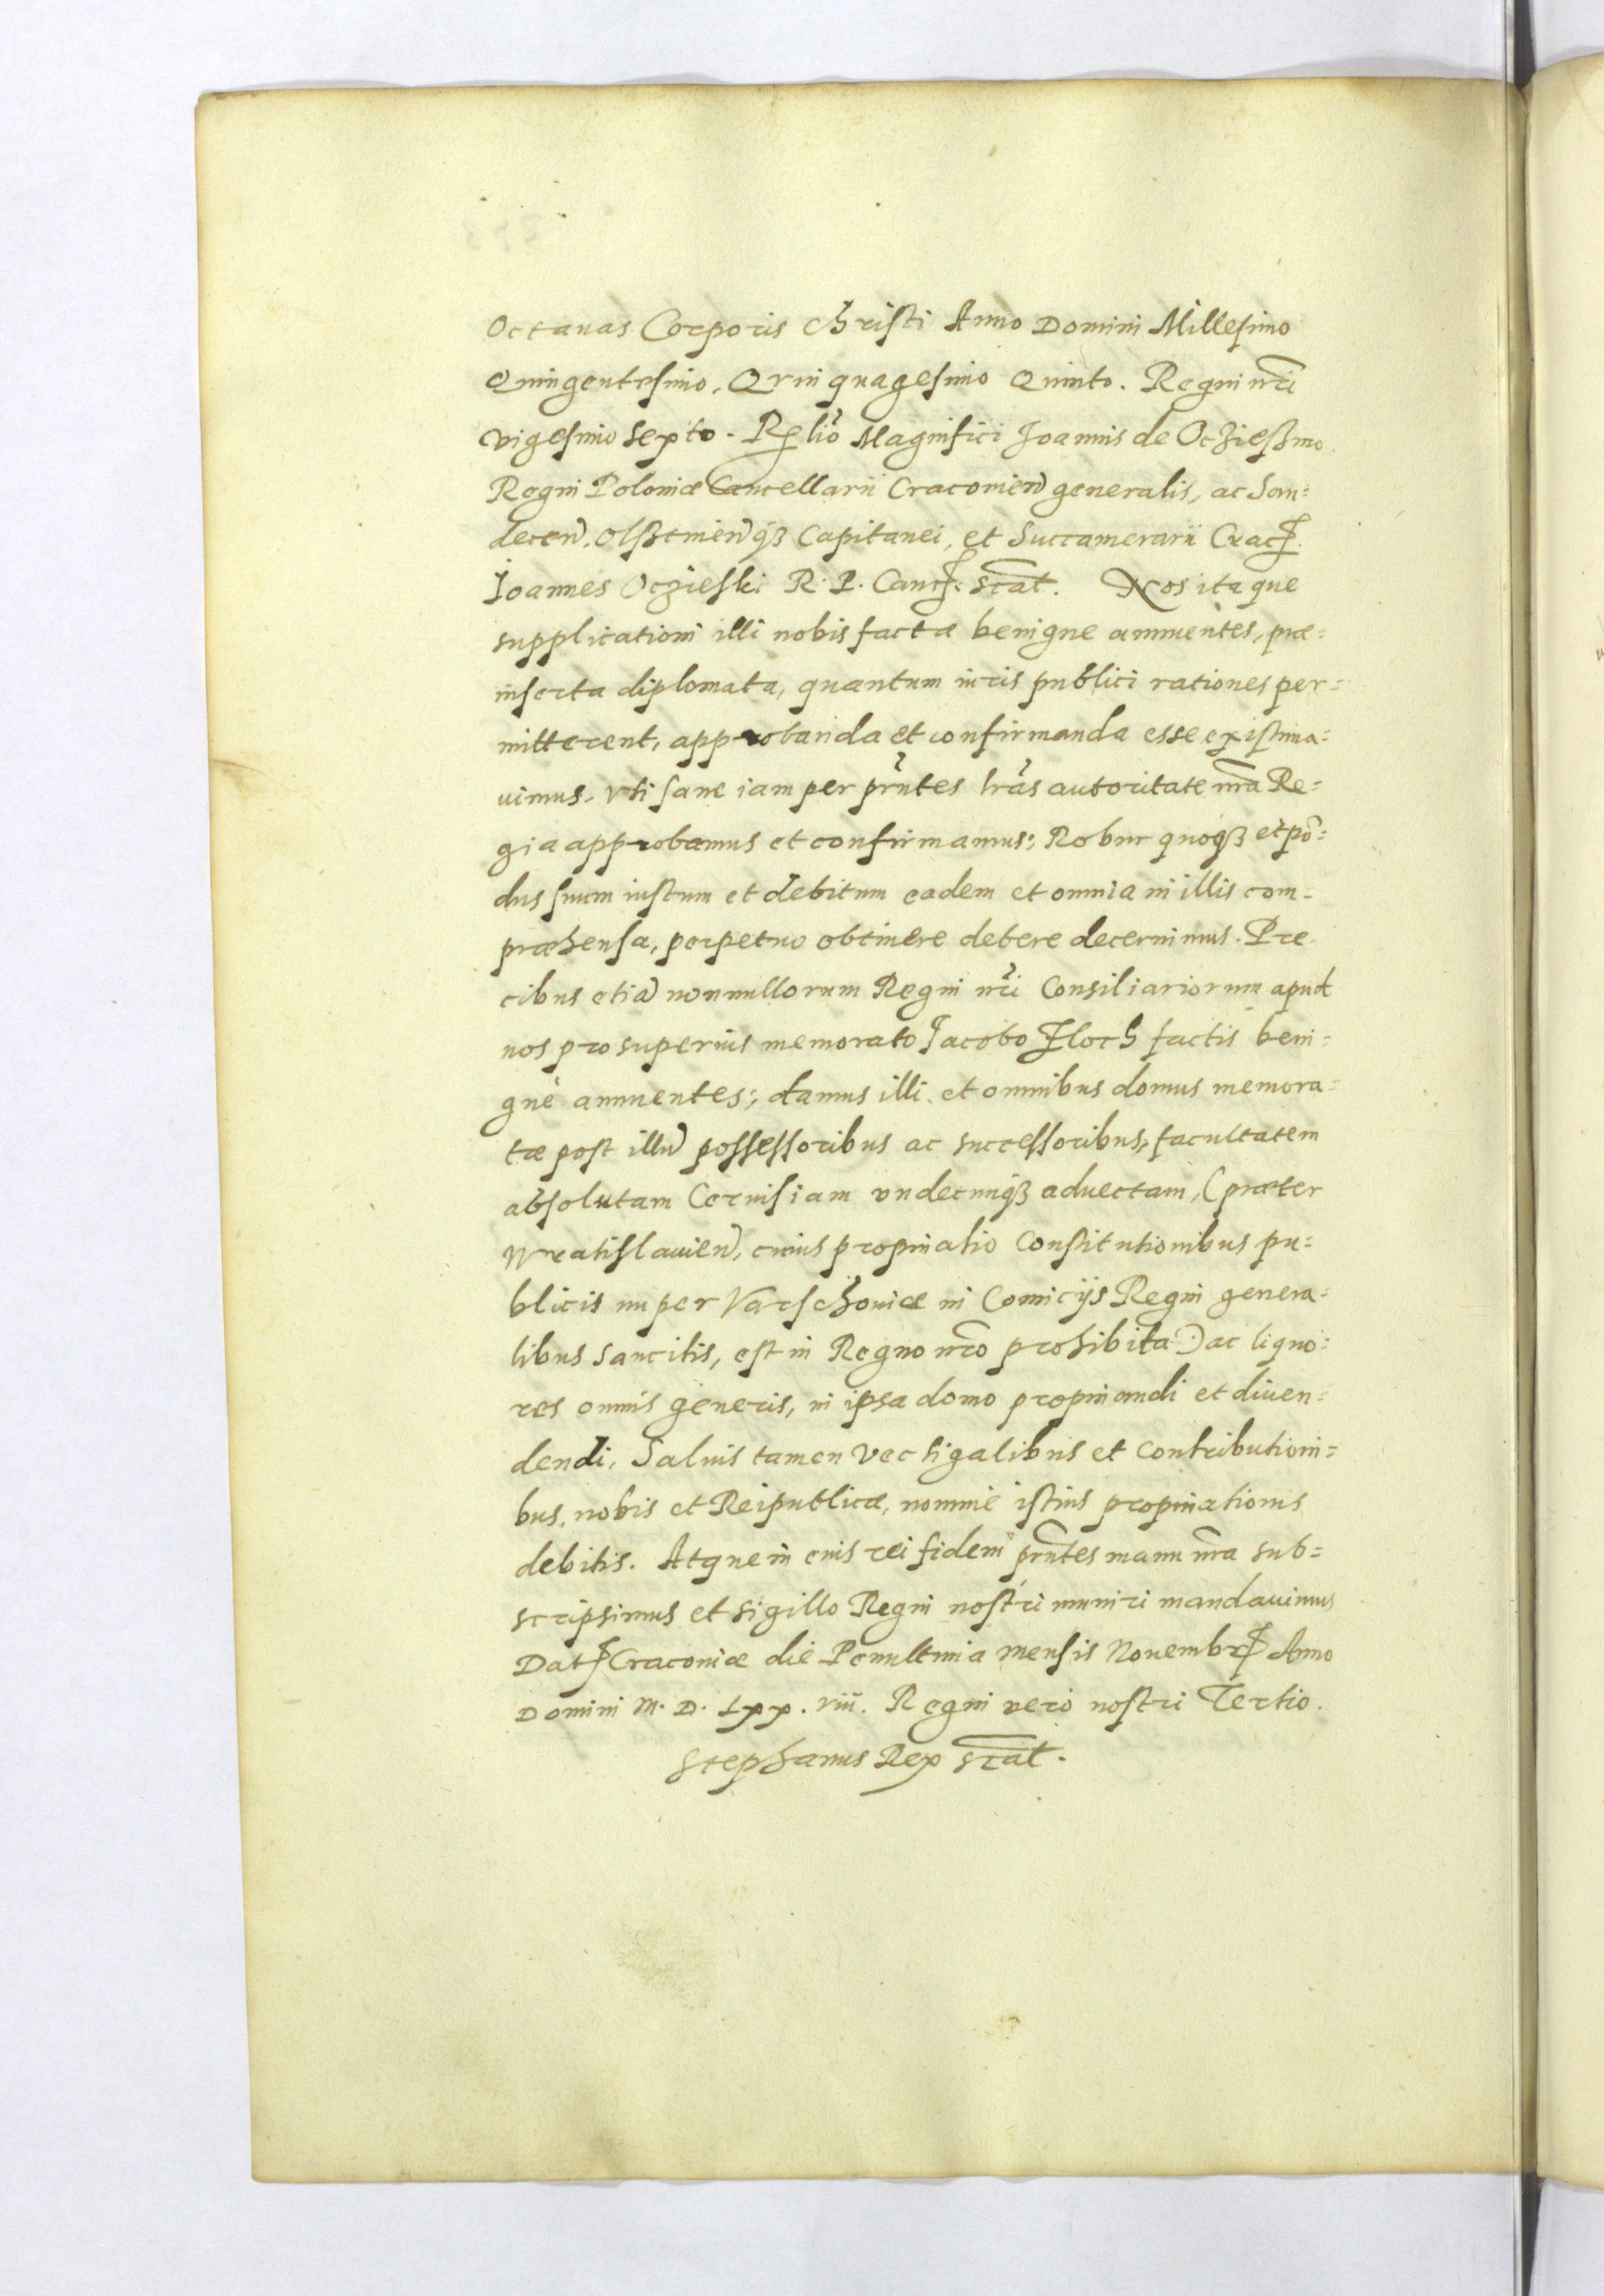 Octauas Corporis Christi Anno Domini Millesimo
Quingentesimo, Quinquagesimo Quinto. Regni nri
vigesimo sexto. Relio Magnifici Joannis de Oczieszino
Regni Poloniæ Cancellarii Cracovien generalis, ac San=
decen, Olsztinienq3 Capitanei, et Succamerarii Crac.
Joannes Oczieski R. P. Canc: scat. Nos itaque
supplicationi illi nobis factæ benigne annuentes, præ=
inserta diplomata, quantum iuris publici rationes per=
mitterent, approbanda et confirmanda esse existima=
uimus. Vti sane iam per prntes lras autoritate nra Re=
gia approbamus et confirmamus; Robur quoq3 et pō=
dus suum iustum et debitum eadem et omnia in illis com=
præhensa, perpetuo obtinere debere decernimus. Pre
cibus etiā nonnullorum Regni nri Consiliariorum apud
nos pro superius memorato Jacobo Floch factis beni=
gnè annuentes; damus illi et omnibus domus memora=
tæ post illū possessoribus ac successoribus, facultatem
absolutam Ceruisiam vndecunq3 aduectam, (præter
Wratislauien, cuius propinatio Constitutionibus pu=
blicis nuper Varschouiæ in Comicijs Regni genera=
libus Sancitis, est in Regno nro prohibita) ac liquo=
res omnis generis, in ipsa domo propinandi et diuen=
dendi, Saluis tamen vectigalibus et contributioni=
bus, nobis et Reipublicæ, nomine istius propinationis
debitis. Atque in cuius rei fidem prntes manu nra sub=
scripsimus et sigillo Regni nostri muniri mandauimus
Dat Cracouiæ die Penultima mensis Nouembr Anno
Domini M. D. Lxx. viii. Regni verò nostri Tertio.
Stephanus Rex scat.